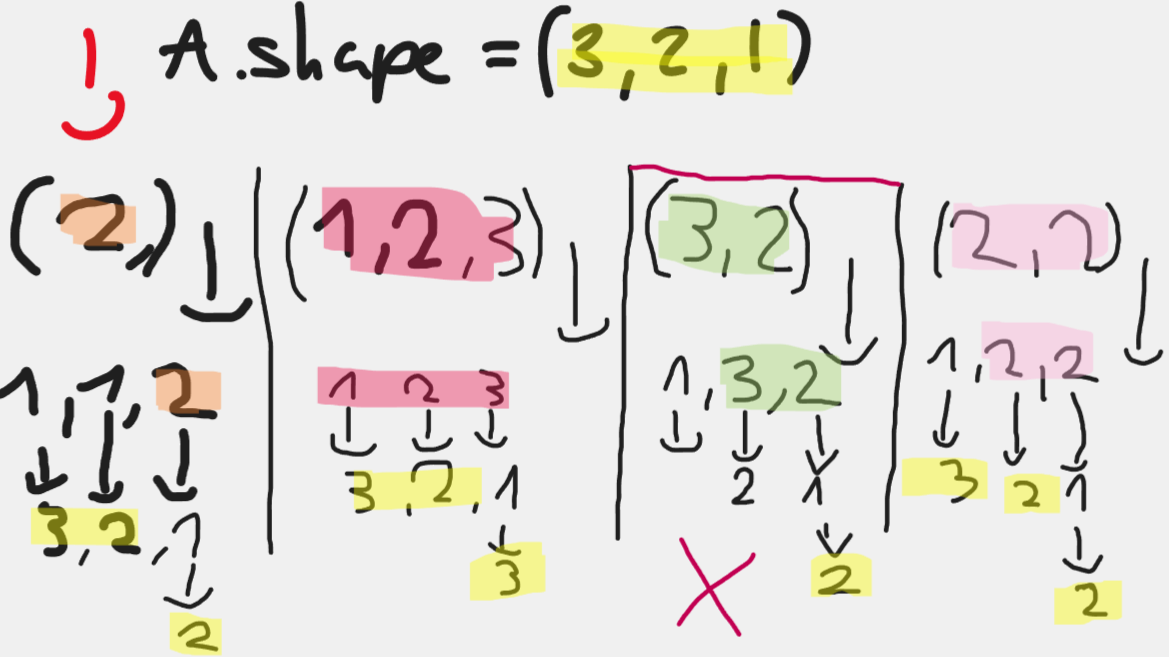 A.shape = (3,2,1)
(2,)
1,1,2
3,2,1
2
(1,2,3)
1 2 3
3,2,1
3
(3,2)
1,3,2
2 1
2
(2,2)
1,2,2
3 2 1
2